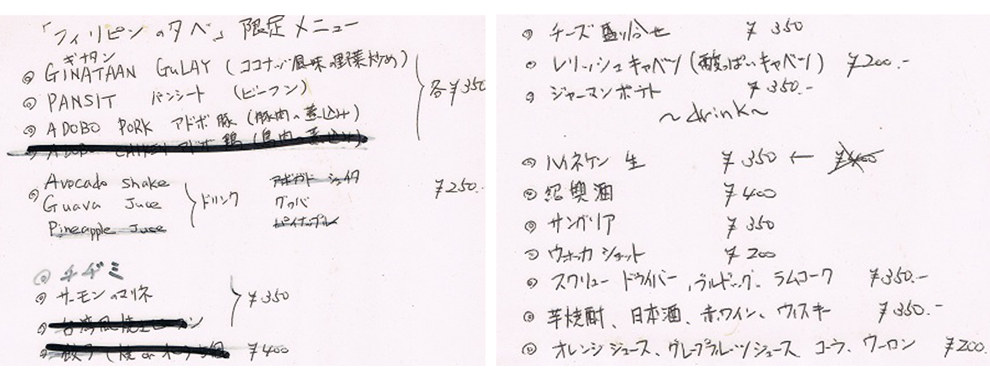 「フィリピンの夕べ」限定メニュー
ギナタン
◎ GINATAAN GULAY (ココナッツ風味の野菜炒め)
◎ PANSIT パンシート (ビーフン)
各¥350
◎ ADOBO PORK アドボ豚 (豚肉の煮込み)
◎ Avocado shake
¥250.-
Guava Juce ドリンク グァバ
Pineapple Juce
◎ チヂミ
◎ サーモンのマリネ ¥350
¥400
◎ チーズ盛り合せ ¥350
◎ レリッシュキャベツ (酸っぱいキャベツ) ¥200.-
◎ ジャーマンポテト ¥350.-
~drink~
◎ ハイネケン 生 ¥350 ← ¥400
◎ 紹興酒 ¥400
◎ サングリア ¥350
◎ ウォッカ ショット ¥200
◎ スクリュードライバー、ブルドッグ、ラムコーク ¥350.-
◎ 芋焼酎、日本酒、赤ワイン、ウィスキー ¥350.-
◎ オレンジジュース、グレープフルーツジュース、コーラ、ウーロン ¥200.